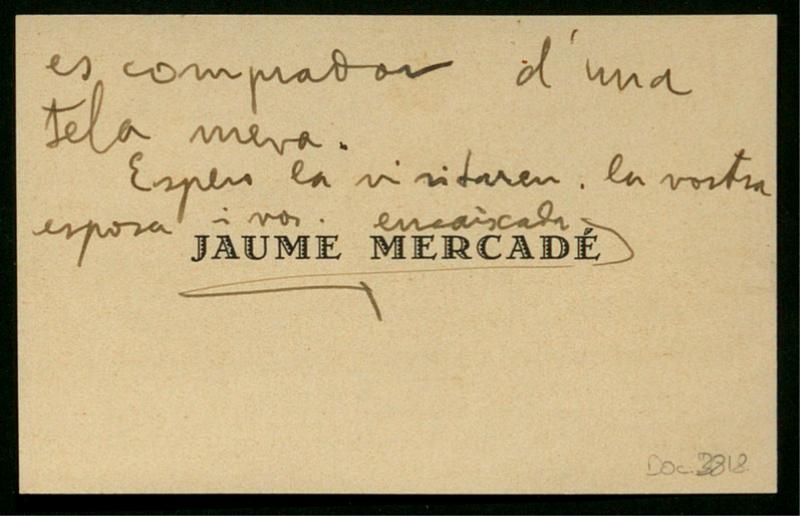 es comprador d'una
tela meva.
Espero la visitaren. la vostra
esposa i vos. encaixada
JAUME MERCADÉ
Doc. 3818